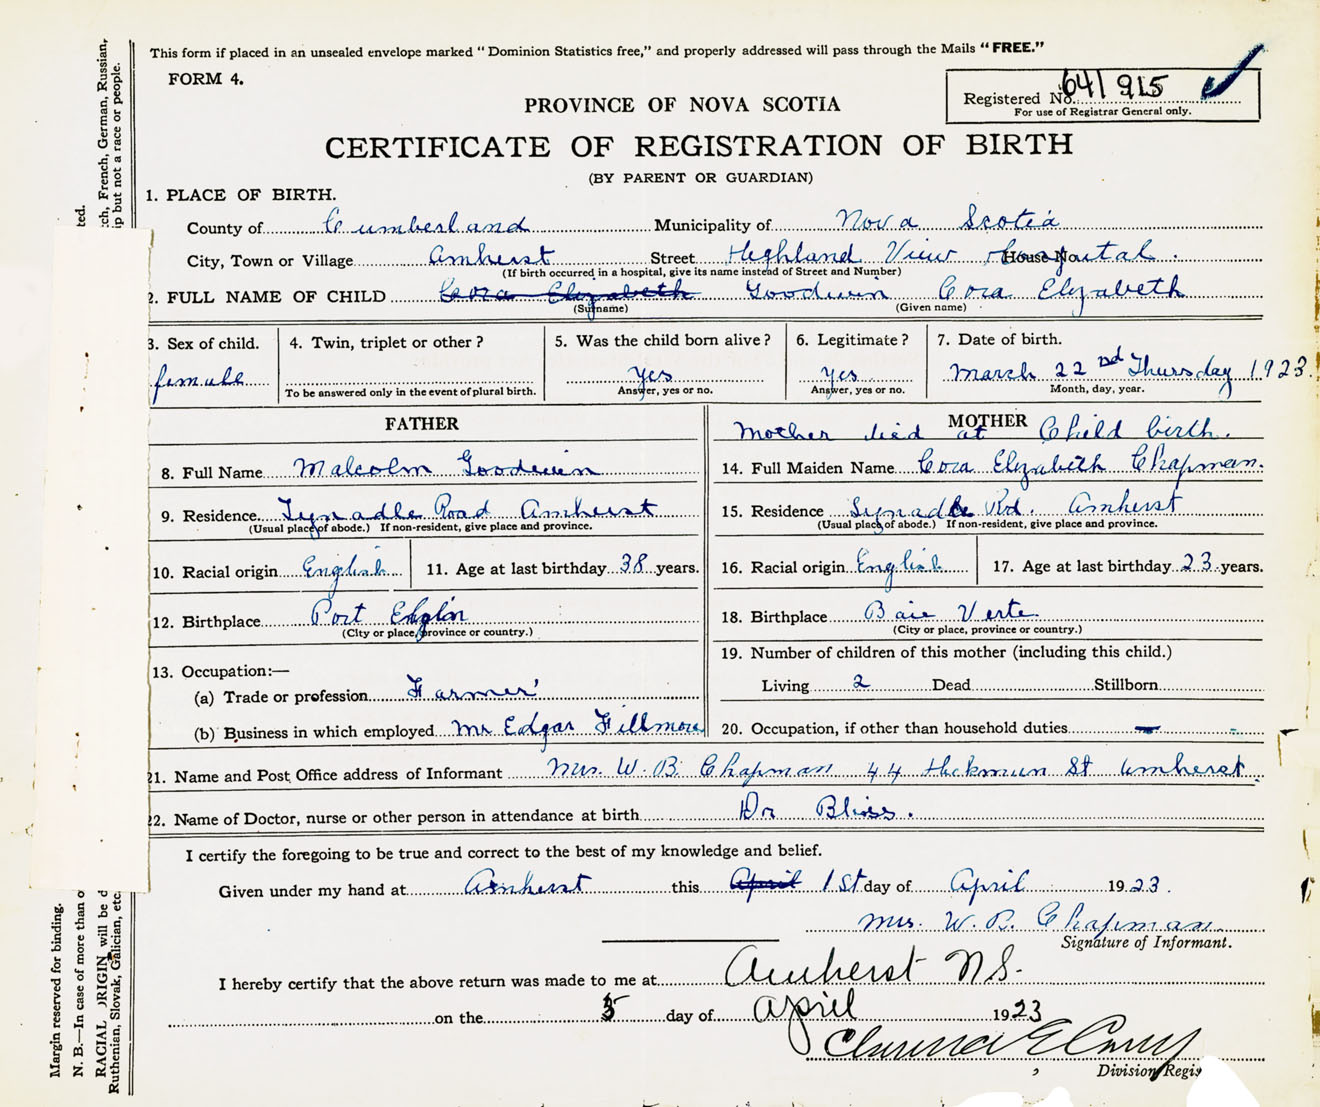 This form if placed in an unsealed envelope marked "Dominion Statistics free," and properly addressed will pass through the Mails "FREE."
FORM 4.
Registered No. 641 915
For use of Registrar General only.
PROVINCE OF NOVA SCOTIA
CERTIFICATE OF REGISTRATION OF BIRTH
(BY PARENT OR GUARDIAN)
1. PLACE OF BIRTH.
County of Cumberland Municipality of Nova Scotia
City, Town or Village Amherst Street Highland View Hospital. House No.
(If birth occurred in a hospital, give its name instead of Street and Number)
2. FULL NAME OF CHILD Cora Elizabeth Goodwin Cora Elizabeth
(Surname) (Given name)
3. Sex of child. 4. Twin, triplet or other? 5. Was the child born alive? 6. Legitimate? 7. Date of birth.
female Yes Yes March 22nd Thursday 1923.
To be answered only in the event of plural birth. Answer, yes or no. Answer, yes or no. Month, day, year.
FATHER MOTHER
Mother died at Child birth.
8. Full Name Malcolm Goodwin 14. Full Maiden Name Cora Elizabeth Chapman.
9. Residence Road Amherst 15. Residence Rd. Amherst
(Usual place of abode.) If non-resident, give place and province. (Usual place of abode.) If non-resident, give place and province.
10. Racial origin English 11. Age at last birthday 38 years. 16. Racial origin English 17. Age at last birthday 23 years.
12. Birthplace Port Elgin 18. Birthplace Baie Verte
(City or place, province or country.) (City or place, province or country.)
13. Occupation:— 19. Number of children of this mother (including this child.)
(a) Trade or profession Farmer Living 2 Dead Stillborn
(b) Business in which employed Mr Edgar Fillmore 20. Occupation, if other than household duties —
21. Name and Post Office address of Informant Mrs. W. B. Chapman 44 Hickman St Amherst.
22. Name of Doctor, nurse or other person in attendance at birth Dr Bliss.
I certify the foregoing to be true and correct to the best of my knowledge and belief.
Given under my hand at Amherst this April 1st day of April 1923.
Mrs. W. B. Chapman.
Signature of Informant.
I hereby certify that the above return was made to me at Amherst N.S.
on the 5 day of April 1923
Clarence E
Division Regis
Margin reserved for binding.
N. B.—In case of more than o
ted.
RACIAL ORIGIN will be d
ch, French, German, Russian,
Ruthenian, Slovak, Galician, etc.
ip but not a race or people.